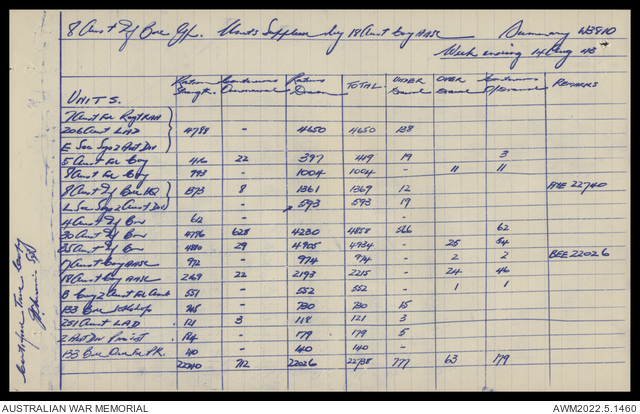 8 Aust Inf Bde Gp. Units Supplied by 18 Aust Coy AASC Summary WB310
Week ending 14 Aug 43
UNITS. Ration Strength Rations Drawn TOTAL. UNDER Drawn OVER Drawn REMARKS
7 Aust Fd Regt RAA
206 Aust LAD 4788 - 4650 4650 138
E Sec Sigs 2 Aust Div
5 Aust Fd Coy 416 22 397 419 19 3
8 Aust Fd Coy 993 - 1004 1004 - 11 11
8 Aust Inf Bde HQ 1373 8 1361 1369 12 AYE 22740
L Sec Sigs 2 Aust Div 593 593 19
4 Aust Inf Bn 612 - -
30 Aust Inf Bn 4796 628 4230 4858 566 62
35 Aust Inf Bn 4880 29 4905 4934 - 25 54
17 Aust Coy AASC 972 - 974 974 - 2 2 BEE 22026
18 Aust Coy AASC 2169 22 2193 2215 - 24 46
B Coy 2 Aust Fd Amb 551 - 552 552 - 1 1
133 Bde Wkshops 745 - 730 730 15
201 Aust LAD 121 3 118 121 3
2 Aust Div Provost 184 - 179 179 5
133 Bde Ord Fd PK. 140 - 140 140 -
22740 712 22026 22738 777 63 179
Certified True Copy
AUSTRALIAN WAR MEMORIAL AWM2022.5.1460